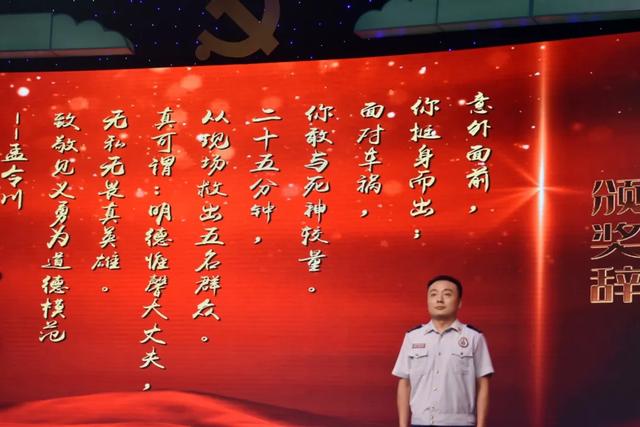 颁奖辞
意外面前，
你挺身而出；
面对车祸，
你敢与死神较量。
二十五分钟，
从现场救出五名群众。
真可谓：明德惟馨大丈夫，
无私无畏真英雄。
致敬见义勇为道德模范
--孟令川